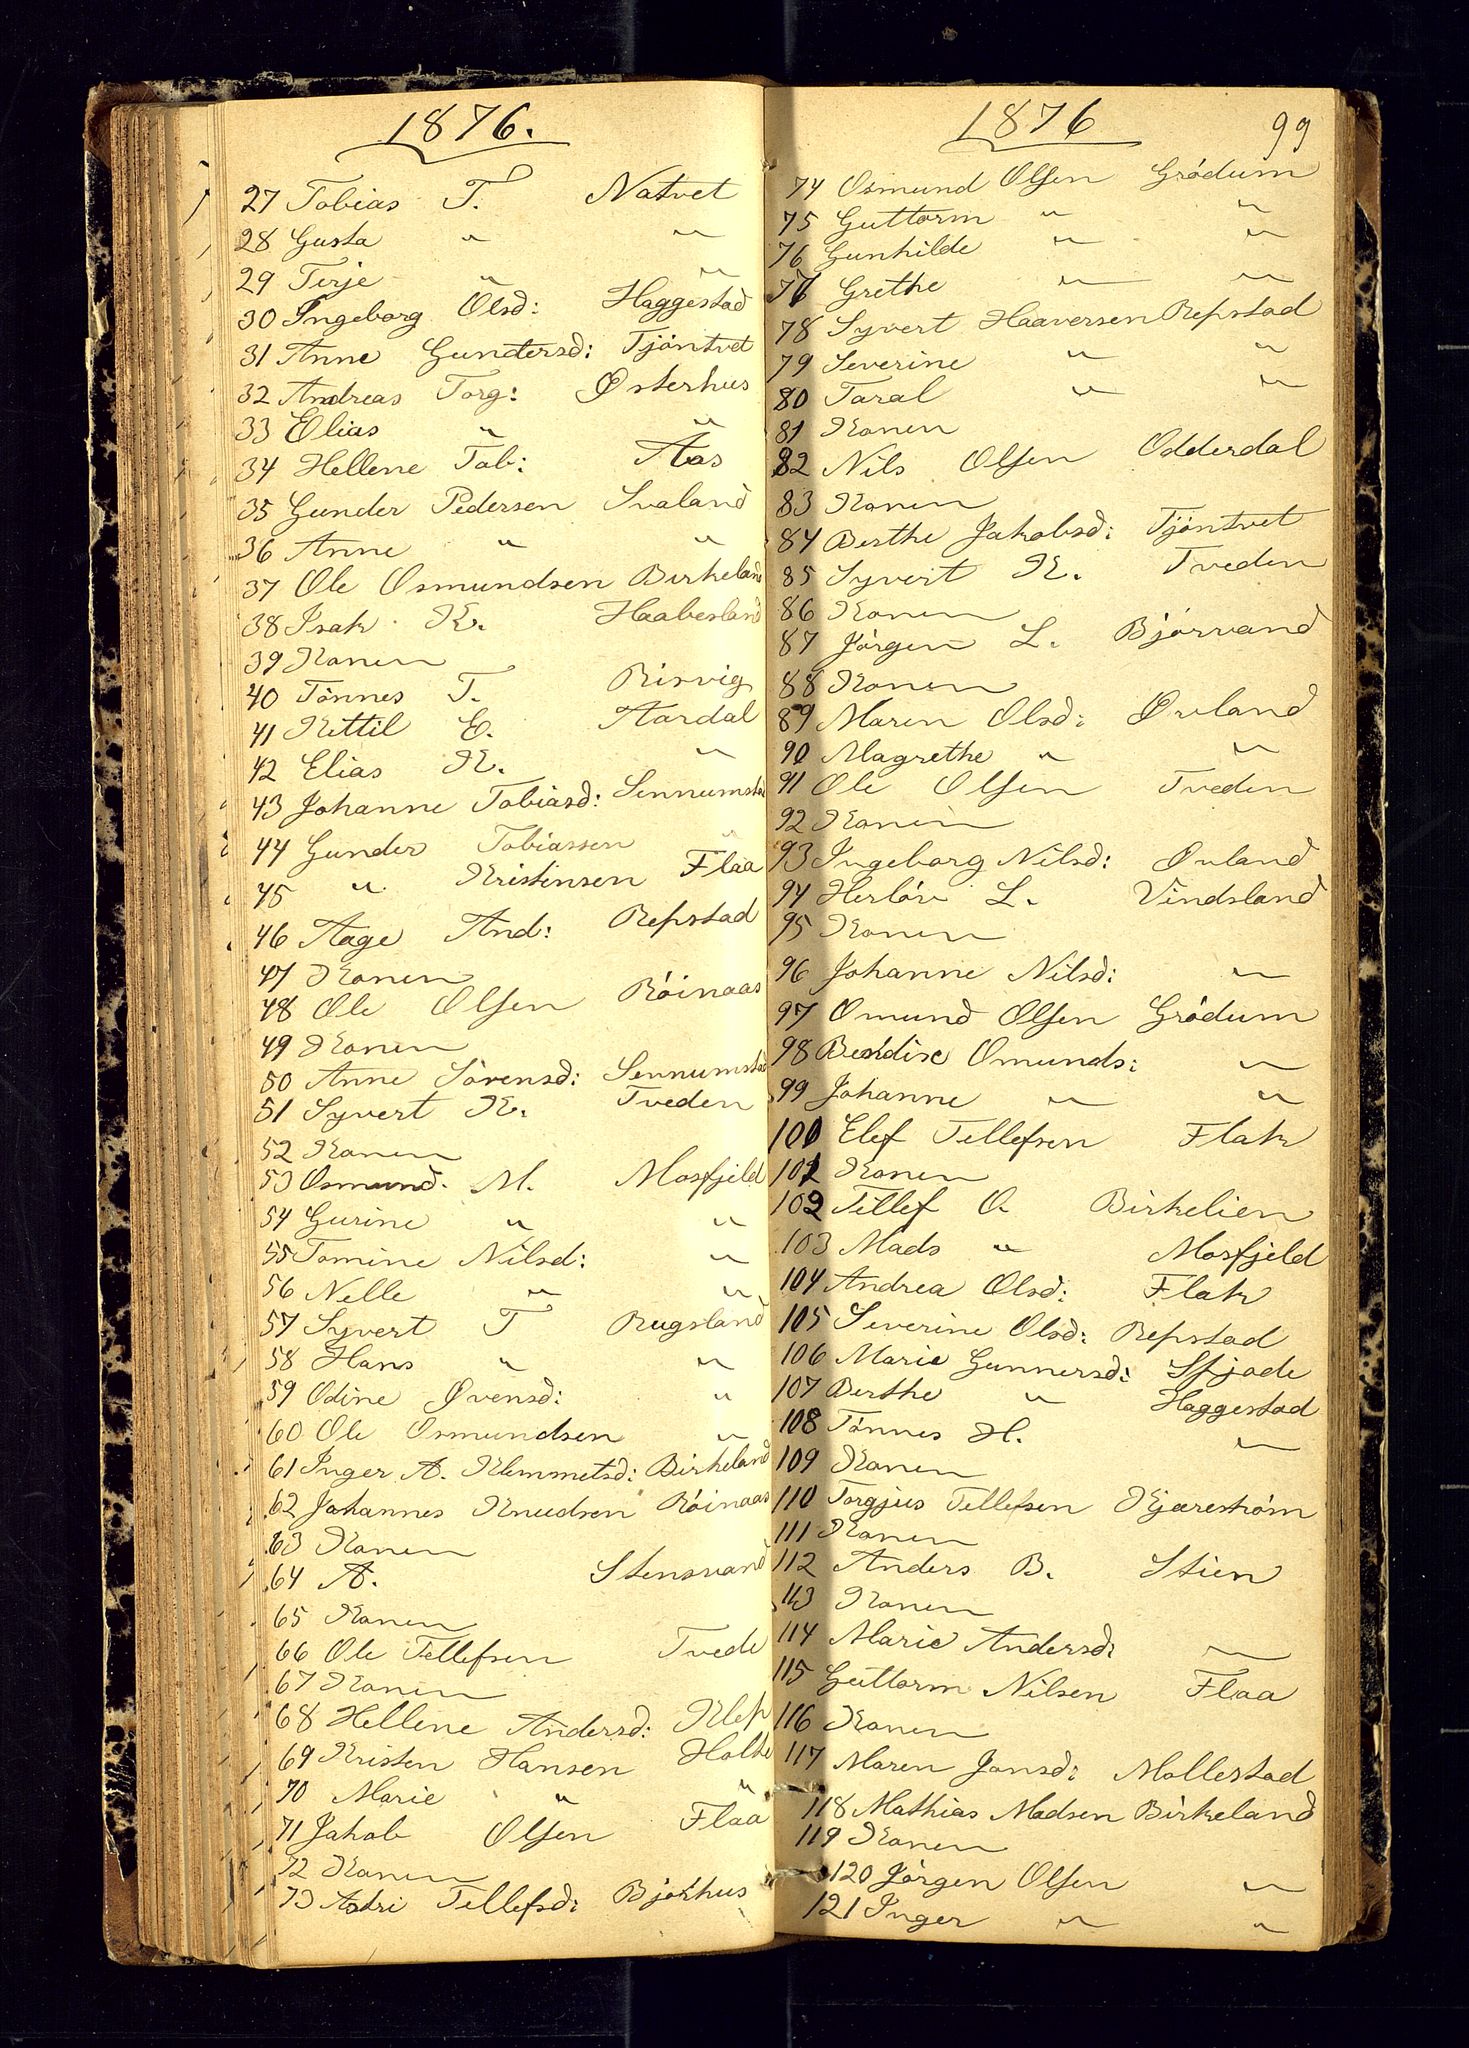 1876.
27 Tobias T. Natvet
28 Gusta " "
29 Terje " "
30 Ingeborg Olsd: Haggestad
31 Anne Gundersd: Tjöntvet
32 Andreas Torg: Østerhus
33 Elias " "
34 Hellene Tob: Aas
35 Gunder Pedersen Svaland
36 Anne " "
37 Ole Osmundsen Birkeland
38 Isak K. Haabesland
39 Konen
40 Tönnes T. Risvig
41 Kittil E. Aardal
42 Elias K. "
43 Johanne Tobiasd: Sennumstad
44 Gunder Tobiassen "
45 " Kristensen Flaa
46 Aage And: Repstad
47 Konen
48 Ole Olsen Röinaas
49 Konen
50 Anne Sörensd: Sennumstad
51 Syvert K. Tveden
52 Konen
53 Osmund M. Mosfjeld
54 Gurine " "
55 Tomine Nilsd: "
56 Nelle " "
57 Syvert T Rugsland
58 Hans " "
59 Odine Øvensd: "
60 Ole Osmundsen "
61 Inger A. Klemmetsd: Birkeland
62 Johannes Knudsen Röinaas
63 Konen
64 A. Stensvand
65 Konen
66 Ole Tellefsen Tvede
67 Konen
68 Hellene Andersd: Klep
69 Kristen Hansen Holte
70 Marie " "
71 Jakob Olsen Flaa
72 Konen
73 Astri Tellefsd: Bjokhus
1876 99
74 Osmund Olsen Grödum
75 Guttorm " "
76 Gunhilde " "
77 Grethe " "
78 Syvert Haaversen Repstad
79 Severine " "
80 Taral " "
81 Konen
82 Nils Olsen Odderdal
83 Konen
84 Berthe Jakobsd: Tjöntvet
85 Syvert K. Tveden
86 Konen
87 Jörgen L. Bjorvand
88 Konen
89 Maren Olsd: Øvland
90 Magrethe " "
91 Ole Olsen Tveden
92 Konen
93 Ingeborg Nilsd: Øvland
94 Herlöv L. Vindsland
95 Konen
96 Johanne Nilsd: "
97 Omund Olsen Grödum
98 Omunds: "
99 Johanne " "
100 Elef Tellefsen Flak
101 Konen
102 Tellef O. Birkelien
103 Mads " Mosfjeld
104 Andrea Olsd: Flak
105 Severine Olsd: Repstad
106 Marie Gunnersd:
107 Berthe " Haggestad
108 Tönnes H. "
109 Konen
110 Torgjus Tellefsen Kjæreström
111 Konen
112 Anders B. Stien
113 Konen
114 Marie Andersd: "
115 Guttorm Nilsen Flaa
116 Konen
117 Maren Jansd: Mollestad
118 Mathias Madsen Birkeland
119 Konen
120 Jörgen Olsen "
121 Inger " "